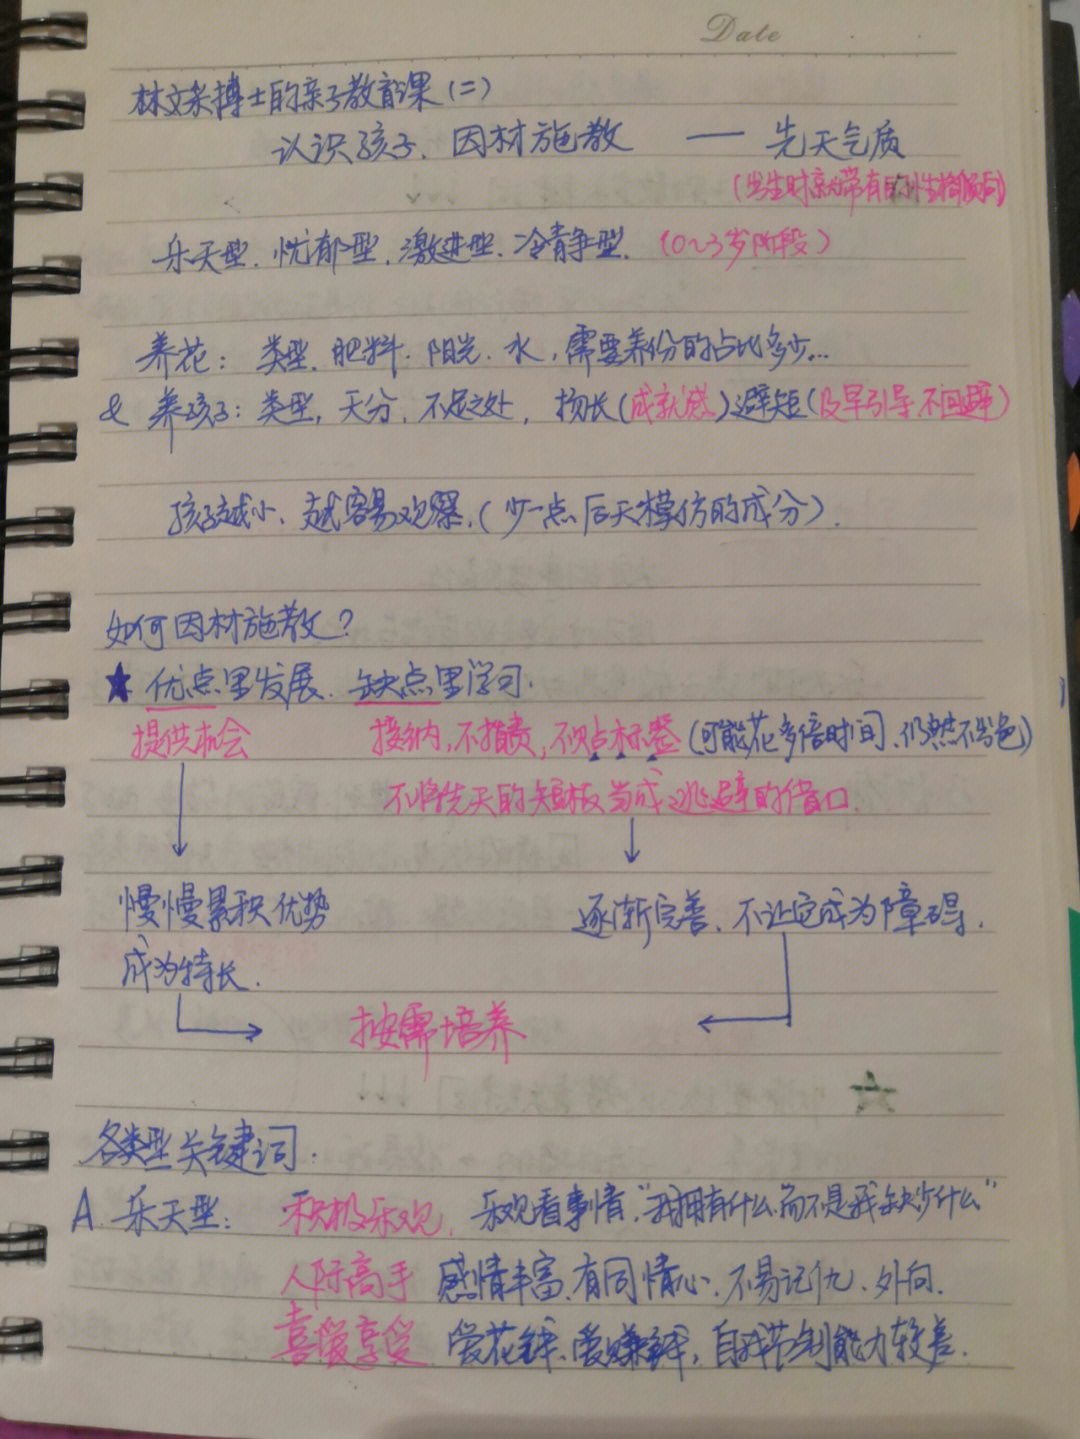 Date
林文采博士的亲子教育课(二)
认识孩子、因材施教 — 先天气质
(出生时就带有的性格倾向)
乐天型、忧郁型、激进型、冷静型. (0~3岁阶段)
养花: 类型、肥料、阳光、水, 需要养份的占比多少...
& 养孩子: 类型, 天分、不足之处, 扬长(成就感)避短(及早引导 不回避)
孩子越小、越容易观察.(少一点后天模仿的成分).
如何因材施教?
★ 优点里发展、缺点里学习.
提供机会 接纳, 不指责, 不贴标签 (可能花多倍时间、仍然不出色)
不将先天的短板当成逃避的借口.
慢慢累积优势 逐渐完善、不让它成为障碍.
成为特长.
按需培养
各类型关键词:
A. 乐天型: 积极乐观. 乐观看事情, "我拥有什么, 而不是我缺少什么"
人际高手 感情丰富、有同情心、不易记仇、外向.
喜爱享受 爱花钱、爱赚钱, 自我节制能力较差.